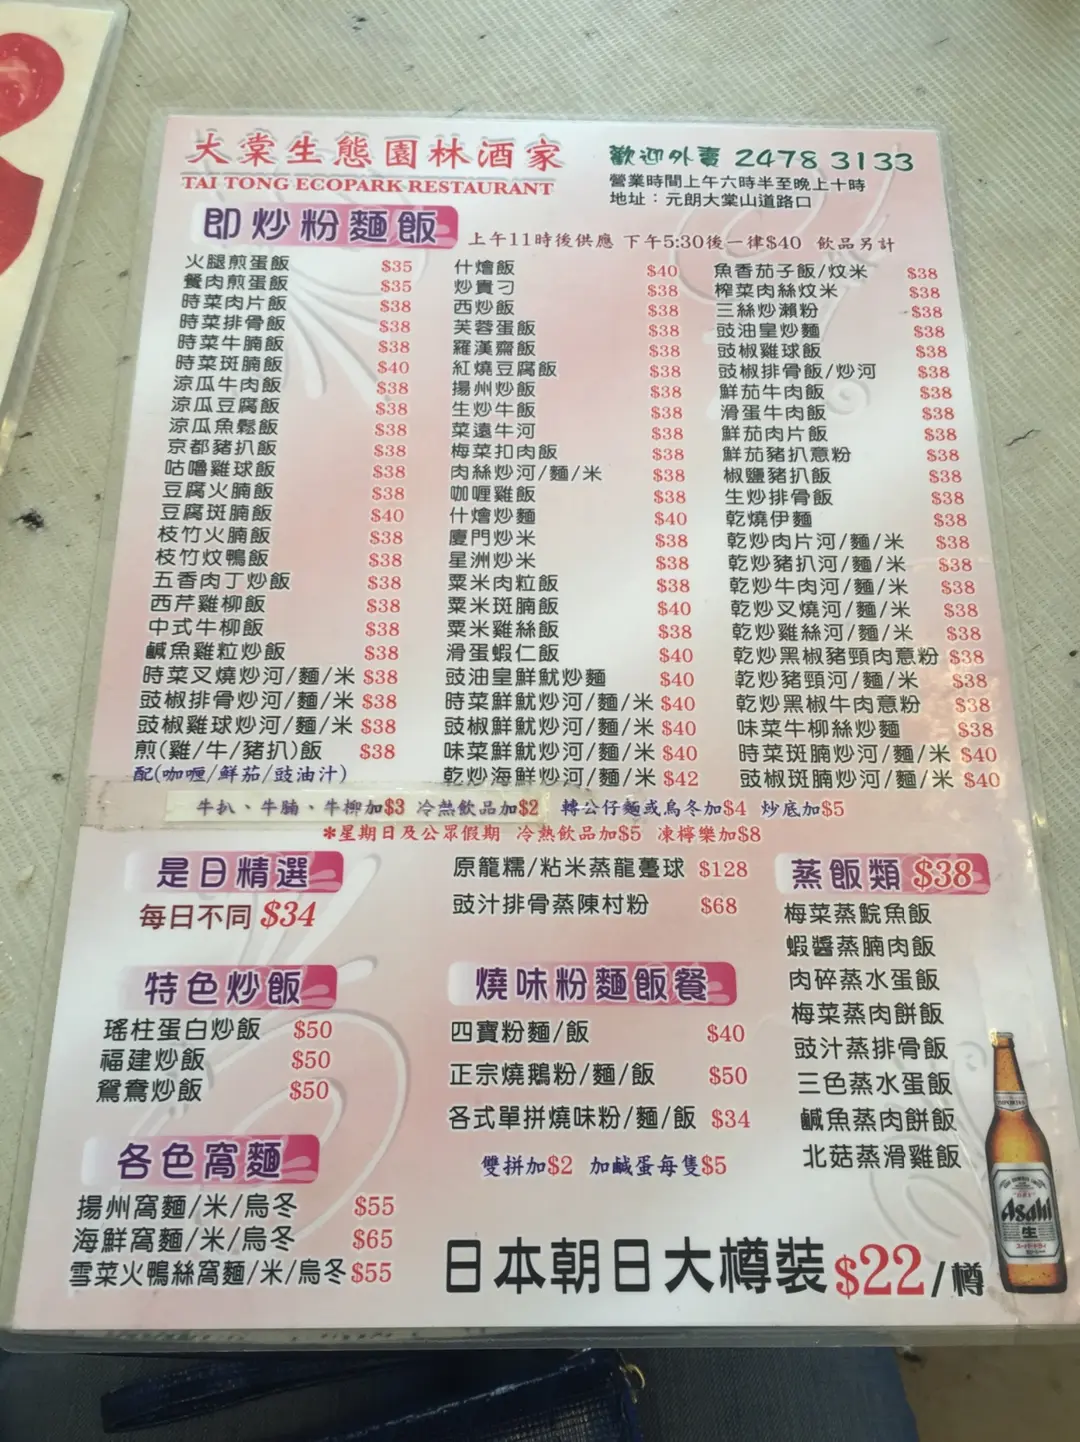 大棠生態園林酒家
TAI TONG ECOPARK RESTAURANT
歡迎外賣 2478 3133
營業時間上午六時半至晚上十時
地址：元朗大棠山道路口
即炒粉麵飯
上午11時後供應 下午5:30後一律$40 飲品另計
火腿煎蛋飯 $35
餐肉煎蛋飯 $35
時菜肉片飯 $38
時菜排骨飯 $38
時菜牛腩飯 $38
時菜斑腩飯 $40
涼瓜牛肉飯 $38
涼瓜豆腐飯 $38
涼瓜魚鬆飯 $38
京都豬扒飯 $38
咕嚕雞球飯 $38
豆腐火腩飯 $38
豆腐斑腩飯 $40
枝竹火腩飯 $38
枝竹炆鴨飯 $38
五香肉丁炒飯 $38
西芹雞柳飯 $38
中式牛柳飯 $38
鹹魚雞粒炒飯 $38
時菜叉燒炒河/麵/米 $38
豉椒排骨炒河/麵/米 $38
豉椒雞球炒河/麵/米 $38
煎(雞/牛/豬扒)飯 $38
配(咖喱/鮮茄/豉油汁)
什燴飯 $40
炒貴刁 $38
西炒飯 $38
芙蓉蛋飯 $38
羅漢齋飯 $38
紅燒豆腐飯 $38
揚州炒飯 $38
生炒牛飯 $38
菜遠牛河 $38
梅菜扣肉飯 $38
肉絲炒河/麵/米 $38
咖喱雞飯 $38
什燴炒麵 $40
廈門炒米 $38
星洲炒米 $38
粟米肉粒飯 $38
粟米斑腩飯 $40
粟米雞絲飯 $38
滑蛋蝦仁飯 $40
豉油皇鮮魷炒麵 $40
時菜鮮魷炒河/麵/米 $40
豉椒鮮魷炒河/麵/米 $40
味菜鮮魷炒河/麵/米 $40
乾炒海鮮炒河/麵/米 $42
魚香茄子飯/炆米 $38
榨菜肉絲炆米 $38
三絲炒瀨粉 $38
豉油皇炒麵 $38
豉椒雞球飯 $38
豉椒排骨飯/炒河 $38
鮮茄牛肉飯 $38
滑蛋牛肉飯 $38
鮮茄肉片飯 $38
鮮茄豬扒意粉 $38
椒鹽豬扒飯 $38
生炒排骨飯 $38
乾燒伊麵 $38
乾炒肉片河/麵/米 $38
乾炒豬扒河/麵/米 $38
乾炒牛肉河/麵/米 $38
乾炒叉燒河/麵/米 $38
乾炒雞絲河/麵/米 $38
乾炒黑椒豬頸肉意粉 $38
乾炒豬頸河/麵/米 $38
乾炒黑椒牛肉意粉 $38
味菜牛柳絲炒麵 $38
時菜斑腩炒河/麵/米 $40
豉椒斑腩炒河/麵/米 $40
牛扒、牛腩、牛柳加$3 冷熱飲品加$2 轉公仔麵或烏冬加$4 炒底加$5
*星期日及公眾假期 冷熱飲品加$5 凍檸樂加$8
是日精選
每日不同 $34
特色炒飯
瑤柱蛋白炒飯 $50
福建炒飯 $50
鴛鴦炒飯 $50
各色窩麵
揚州窩麵/米/烏冬 $55
海鮮窩麵/米/烏冬 $65
雪菜火鴨絲窩麵/米/烏冬 $55
原籠糯/粘米蒸龍躉球 $128
豉汁排骨蒸陳村粉 $68
燒味粉麵飯餐
四寶粉麵/飯 $40
正宗燒鵝粉/麵/飯 $50
各式單拼燒味粉/麵/飯 $34
雙拼加$2 加鹹蛋每隻$5
蒸飯類 $38
梅菜蒸鯇魚飯
蝦醬蒸腩肉飯
肉碎蒸水蛋飯
梅菜蒸肉餅飯
豉汁蒸排骨飯
三色蒸水蛋飯
鹹魚蒸肉餅飯
北菇蒸滑雞飯
日本朝日大樽裝 $22/樽
Asahi
生